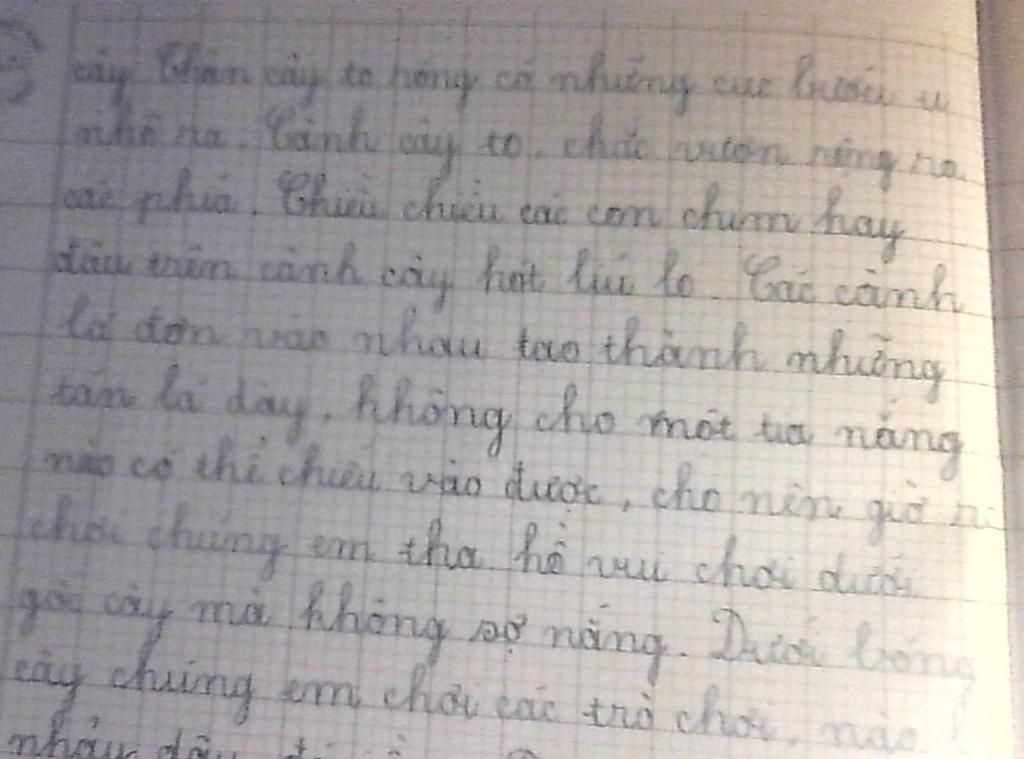 cây. Thân cây to hồng có những cục bướu u
nhô ra. Cành cây to, chắc vươn rộng ra
các phía. Chiều chiều các con chim hay
đậu trên cành cây hót líu lo. Các cành
lá đan vào nhau tạo thành những
tán lá dày, không cho một tia nắng
nào có thể chiếu vào được, cho nên giờ
chơi chúng em tha hồ vui chơi dưới
gốc cây mà không sợ nắng. Dưới bóng
cây chúng em chơi các trò chơi, nào
nhảy dây,